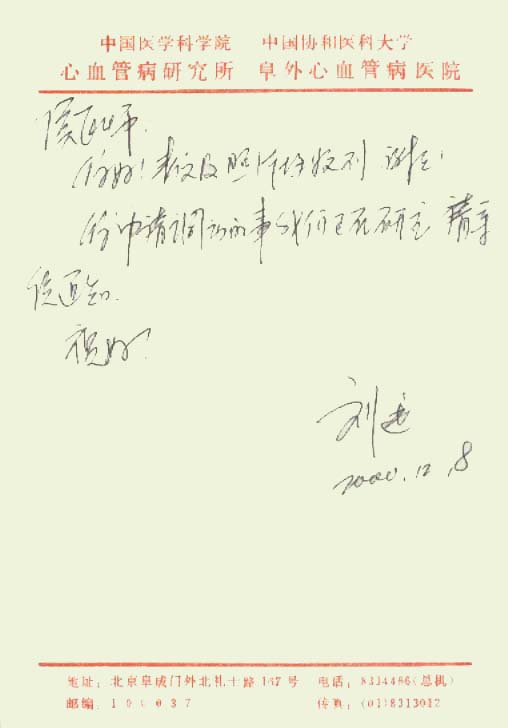 中国医学科学院 中国协和医科大学
心血管病研究所 阜外心血管病医院
你好!来文及照片均收到 谢谢!
你申请调动的事我们已在研究 请等
候通知.
祝好!
刘
2000.12.8
地址:北京阜成门外北礼士路167号 电话:8314466(总机)
邮编:100037 传真:(01)8313012